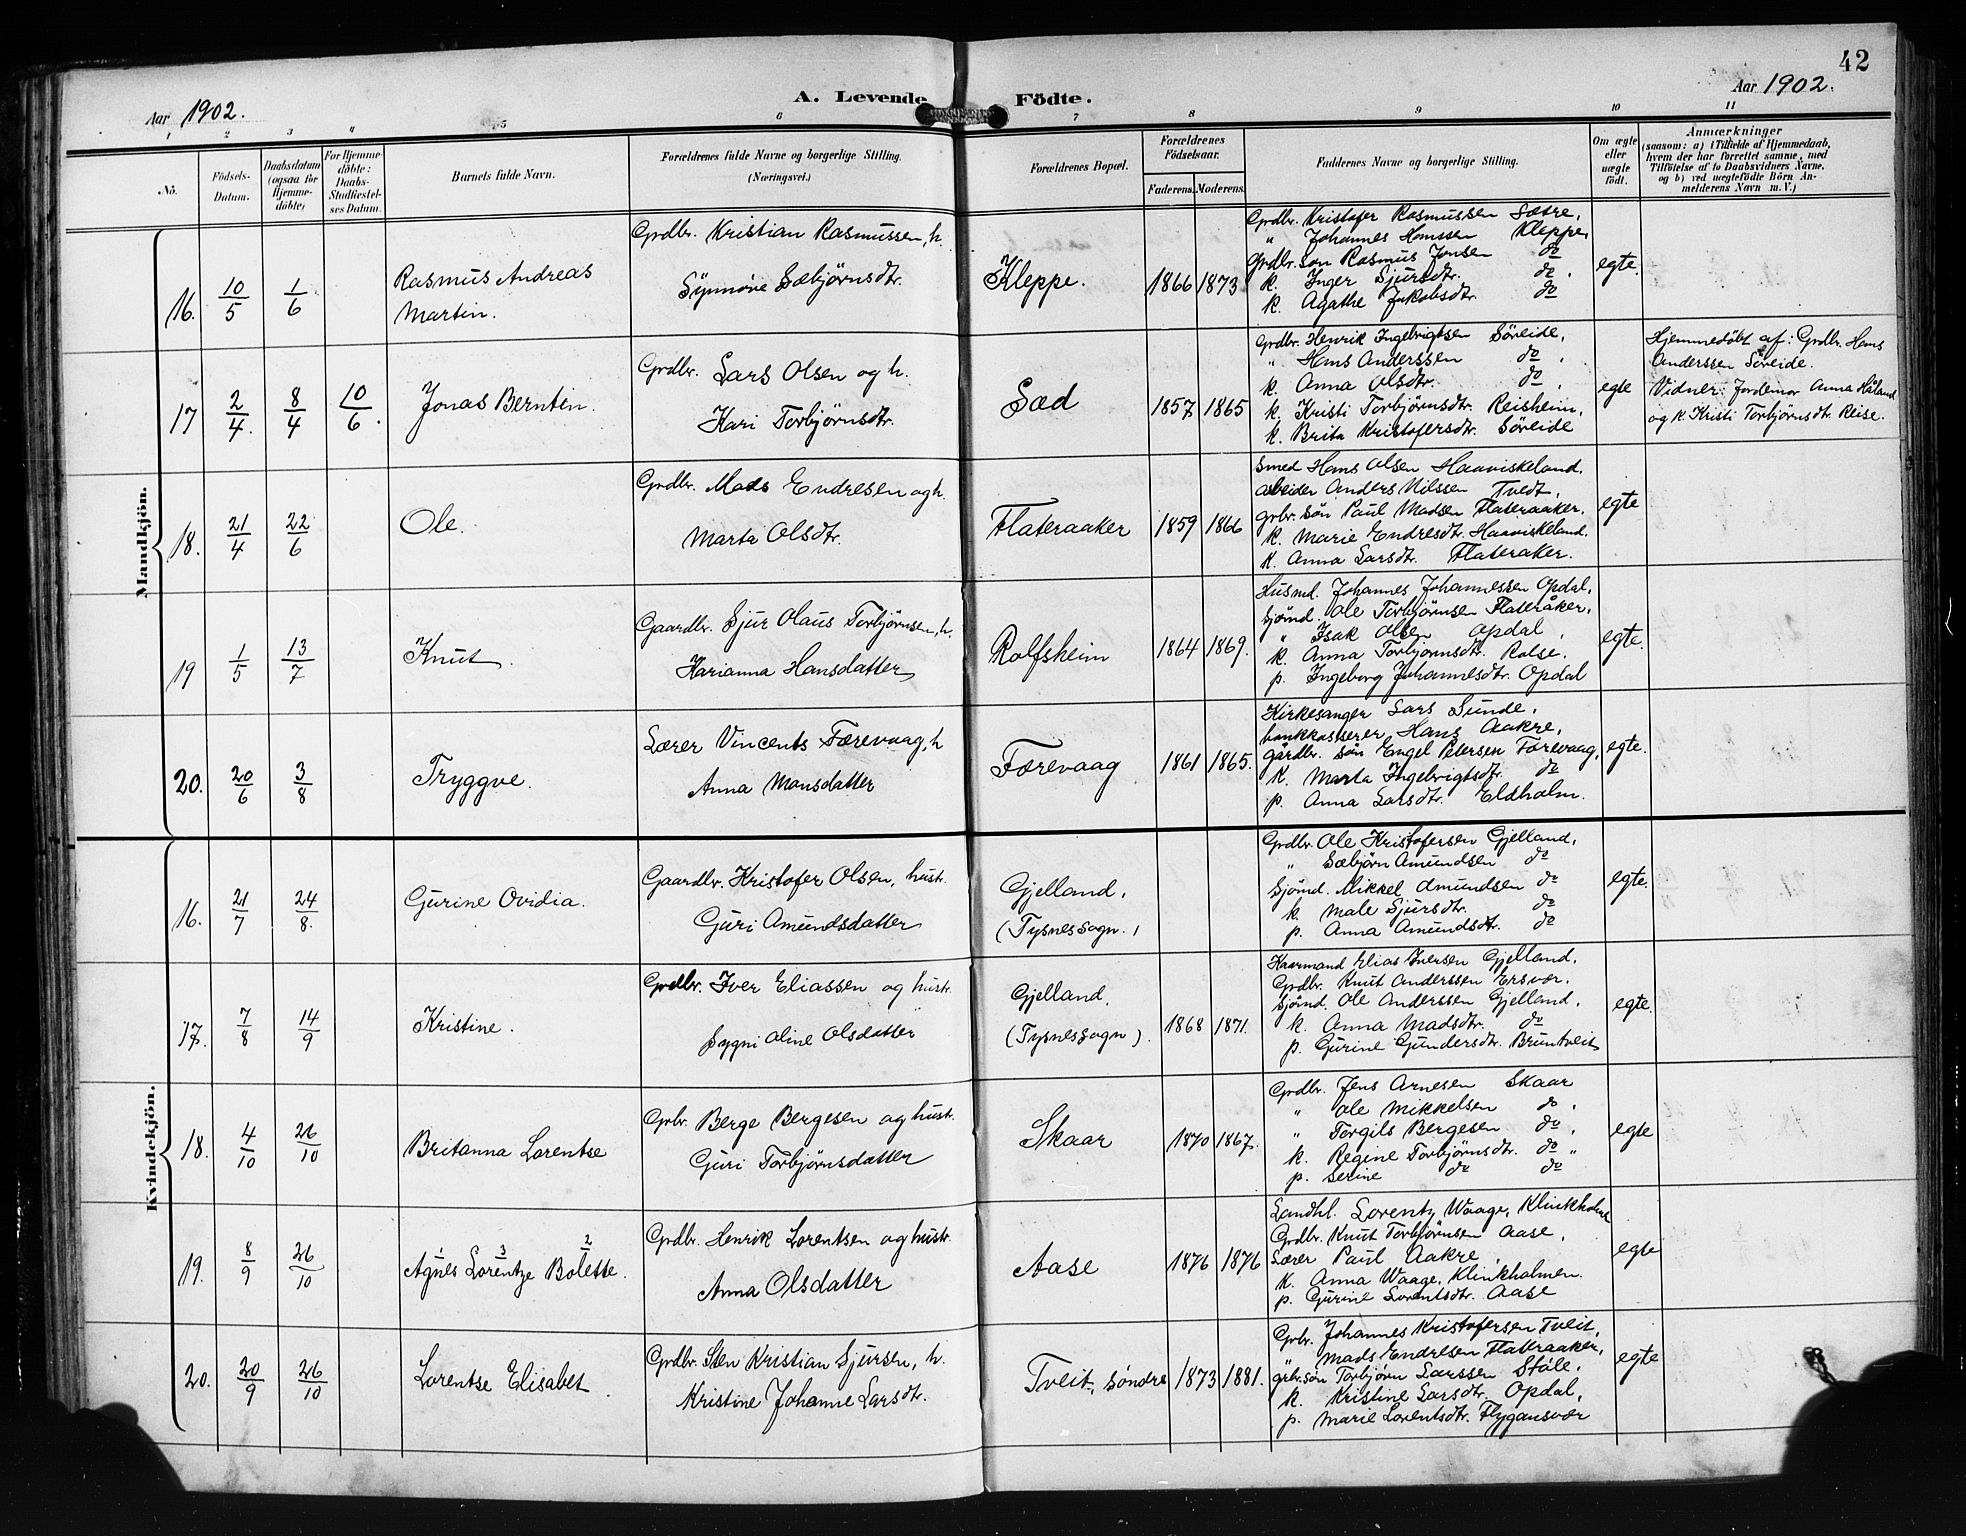 42
Aar 1902.
A. Levende Födte.
Aar 1902.
1 2 3 4 5 6 7 8 9 10 11
No.
Födsels-Datum.
Daabsdatum (ogsaa for Hjemme-döbte)
For Hjemme-döbte: Daabs-Stadfæstel-ses Datum.
Barnets fulde Navn.
Forældrenes fulde Navne og borgerlige Stilling.
(Næringsvei.)
Forældrenes Bopæl.
Forældrenes Födselsaar.
Faderens. Moderens.
Faddernes Navne og borgerlige Stilling.
Om ægte eller uægte født.
Anmærkninger
(saasom: a) i Tilfælde af Hjemmedaab,
hvem der har forrettet samme, med
Tilföielse af to Daabsvidners Navne,
og b) ved uægtefödte Börn An-
melderens Navn m.V.)
Mandkjön.
16. 10/5 1/6
Rasmus Andreas
Martin.
Grdbr. Kristian Rasmussen, h.
Synnøve Sæbjörnsdtr.
Kleppe. 1866 1873
Grdbr. Kristofer Rasmussen Sætre,
" Johannes Hanssen Kleppe,
Grdbr. søn Rasmus Jonsen do
k. Inger Sjursdtr. do.
k. Agathe Jakobsdtr. do
egte.
17 2/4. 8/4 10/6.
Jonas Berntin.
Grdbr. Lars Olsen og h.
Kari Torbjörnsdtr.
Sæd 1857 1865
Grdbr. Henrik Ingebrigtsen Söreide,
" Hans Anderssen do.
k. Anna Olsdtr. do.
k. Kristi Torbjørnsdtr. Reisheim,
k. Brita Kristofersdtr. Söreide
egte
Hjemmedöbt af: Grdbr. Hans
Anderssen Söreide.
Vidner: Jordemor Anna Håland
og k. Kristi Torbjörnsdtr. Reise.
18. 21/4 22/6
Ole.
Grdbr. Mads Endresen og h.
Marta Olsdtr.
Flateraaker 1859 1866
Smed Hans Olsen Haaviskeland.
arbeider Anders Nilssen Tvedt,
grbr. søn Paul Madsen Flateraaker.
k. Marie Endresdtr. Haaviskeland.
k. Anna Larsdtr. Flateraker.
egte
19 1/5 13/7
Knut.
Gaardbr. Sjur Olaus Torbjørnsen, h.
Karianna Hansdatter
Rolfsheim 1864 1869.
Husmd. Johannes Johannessen Opdal,
Sjømd. Ole Torbjørnsen Flateråker,
" Isak Olsen Opdal,
k. Anna Torbjörnsdtr. Rolse,
p. Ingeborg Johannesdtr. Opdal
egte.
20. 20/6 3/8
Tryggve.
Lærer Vincents Færevaag, h
Anna Monsdatter
Færevaag 1861 1865.
Kirkesanger Lars Sunde,
bankkasserer Hans Aakre,
gårdbr. søn Engel Petersen Færevaag,
k. Marta Ingebrigtsdtr. do
p. Anna Larsdtr. Eldholm.
egte.
Kvindekjön.
16. 21/7 24/8.
Gurine Ovidia.
Gaardbr. Kristofer Olsen, hustr.
Guri Amundsdatter
Gjelland,
(Tysnessogn.)
Grdbr. Ole Kristofersen Gjelland,
" Sæbjörn Amundsen do
Sjömd. Mikkel Amundsen do
k. Male Sjursdtr. do
p. Anna Amundsdtr. do
egte.
17. 7/8 14/9
Kristine.
Grdbr. Iver Eliassen og hustr.
Sygni Oline Olsdatter
Gjelland.
(Tysnessogn). 1868 1871.
Kaarmand Elias Iversen Gjelland.
Grdbr. Knut Anderssen Ersvær.
Sjömd. Ole Anderssen Gjelland.
k. Anna Madsdtr. do
p. Gurine Gundersdtr. Bruntveit
egte.
18. 4/10 26/10
Britanna Lorentse
Grbr. Berge Bergesen og hustr.
Guri Torbjørnsdatter
Skaar 1870 1867.
Grdbr. Jens Arnesen Skaar
" Ole Mikkelsen do.
" Torgils Bergesen do.
k. Regine Torbjørnsdtr. do "
p. Serine do do
egte
19. 8/9 26/10
1 3 2
Agnes Lorentze Bolette.
Grdbr. Henrik Lorentsen og hustr.
Anna Olsdatter
Aase 1876 1876
Landhl. Lorentz Waage, Klinkholmen
Grdbr. Knut Torbjørnsen Aase,
Lærer Paul Aakre,
k. Anna Waage, Klinkholmen.
p. Gurine Lorentsdtr. Aase
egte
20. 20/9 26/10
Lorentse Elisabet.
Grdbr. Sten Kristian Sjursen, h.
Kristine Johanne Larsdtr.
Tveit, söndre 1873 1881.
Grbr. Johannes Kristofersen Tveit,
" Mads Endresen Flateraaker,
grbr. søn Torbjørn Larssen Ståle,
k. Kristine Larsdtr. Opdal,
p. Marie Lorentsdtr. Flygansvær
egte